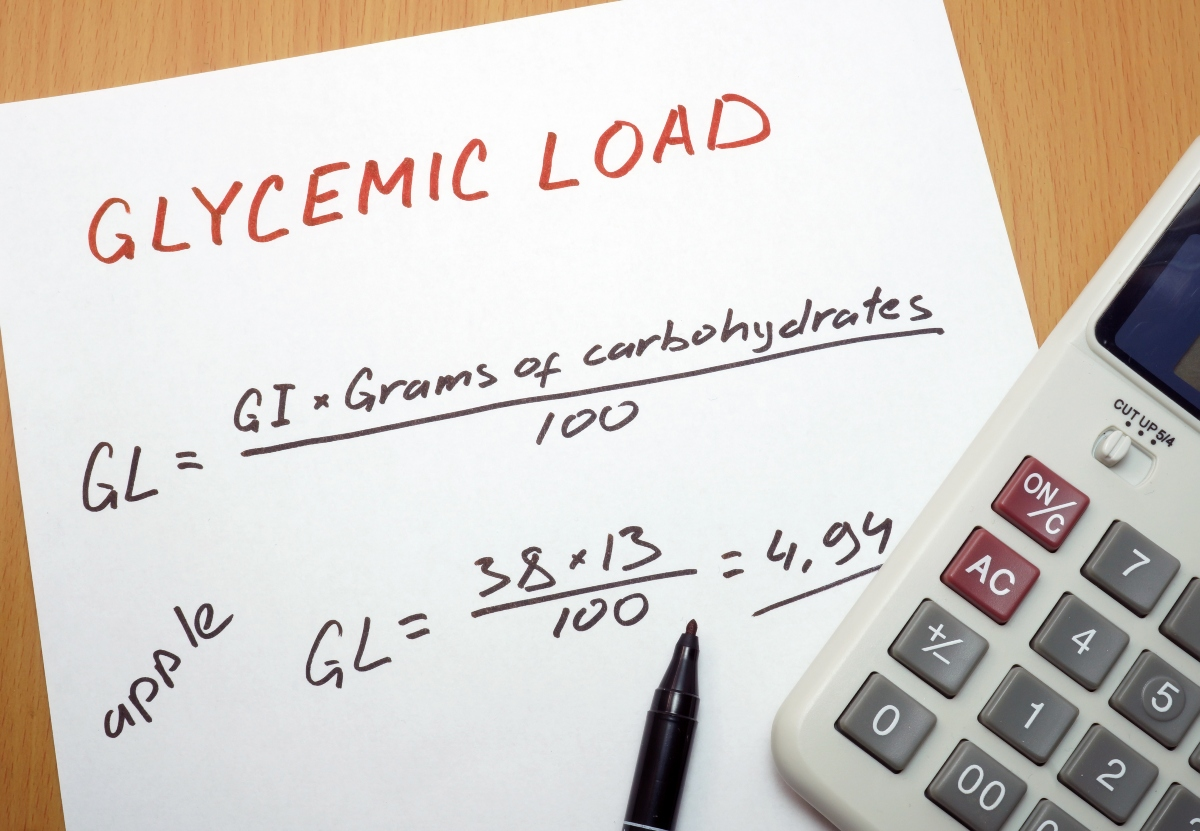 GLYCEMIC LOAD
GI × Grams of carbohydrates
GL =
100
38 × 13
apple GL = = 4,94
100
CUT UP 5/4
ON/C
AC
7
+/-
4
5
0
1
2
00